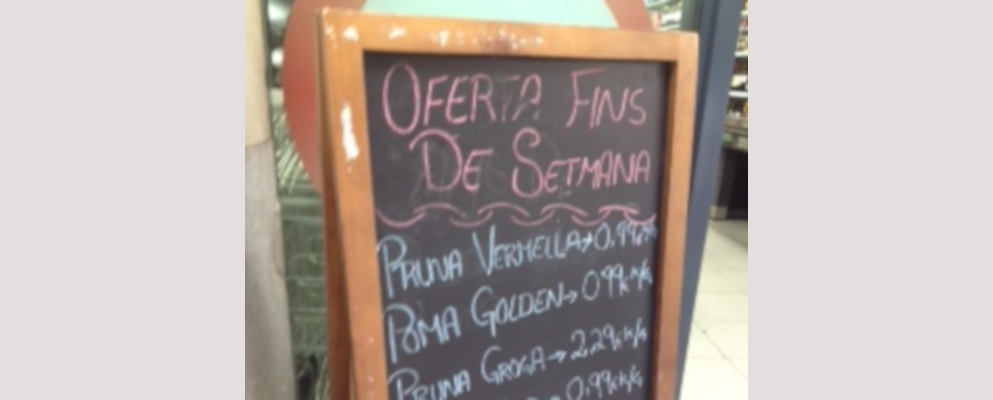 OFERTA FINS
DE SETMANA
PRUNA VERMELLA→0,99
POMA GOLDEN→ 0'99€/KG
PRUNA GROGA→ 2,29€/KG
0,99€/KG